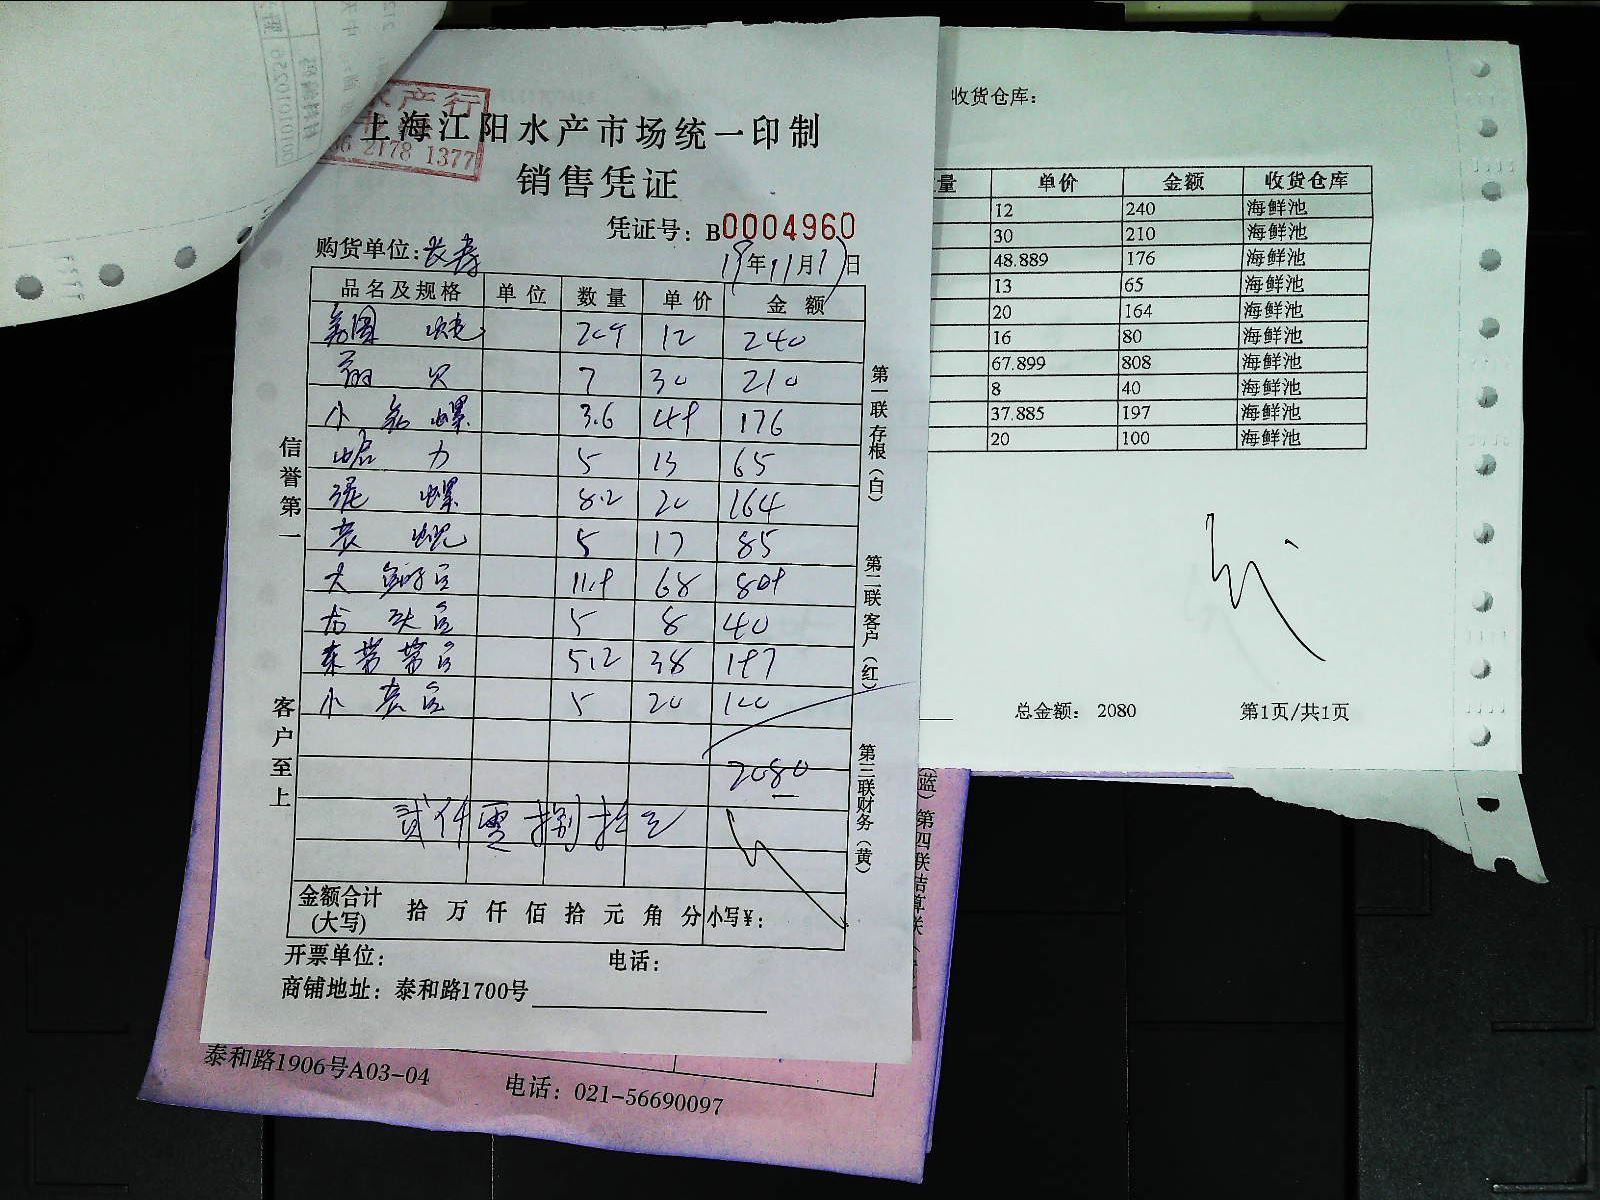 水产行
2178 1377
上海江阳水产市场统一印制
销售凭证
凭证号：B0004960
购货单位：长寿
19年11月17日
品名及规格 单位 数量 单价 金额
12 240
贝 7 30 210
小 螺 3.6 49 176
力 5 13 65
泥 螺 8.2 20 164
5 17 85
大 11.9 68 809
龙头 5 8 40
5.2 38 197
小 5 20 100
2080
贰仟零捌拾元
金额合计
(大写)
拾 万 仟 佰 拾 元 角 分 小写¥：
开票单位： 电话：
商铺地址：泰和路1700号
信誉第一
客户至上
第一联 存根（白）
第二联 客户（红）
第三联 财务（黄）
收货仓库：
量 单价 金额 收货仓库
12 240 海鲜池
30 210 海鲜池
48.889 176 海鲜池
13 65 海鲜池
20 164 海鲜池
16 80 海鲜池
67.899 808 海鲜池
8 40 海鲜池
37.885 197 海鲜池
20 100 海鲜池
总金额： 2080 第1页/共1页
（蓝）第四联结算联
泰和路1906号A03-04
电话：021-56690097